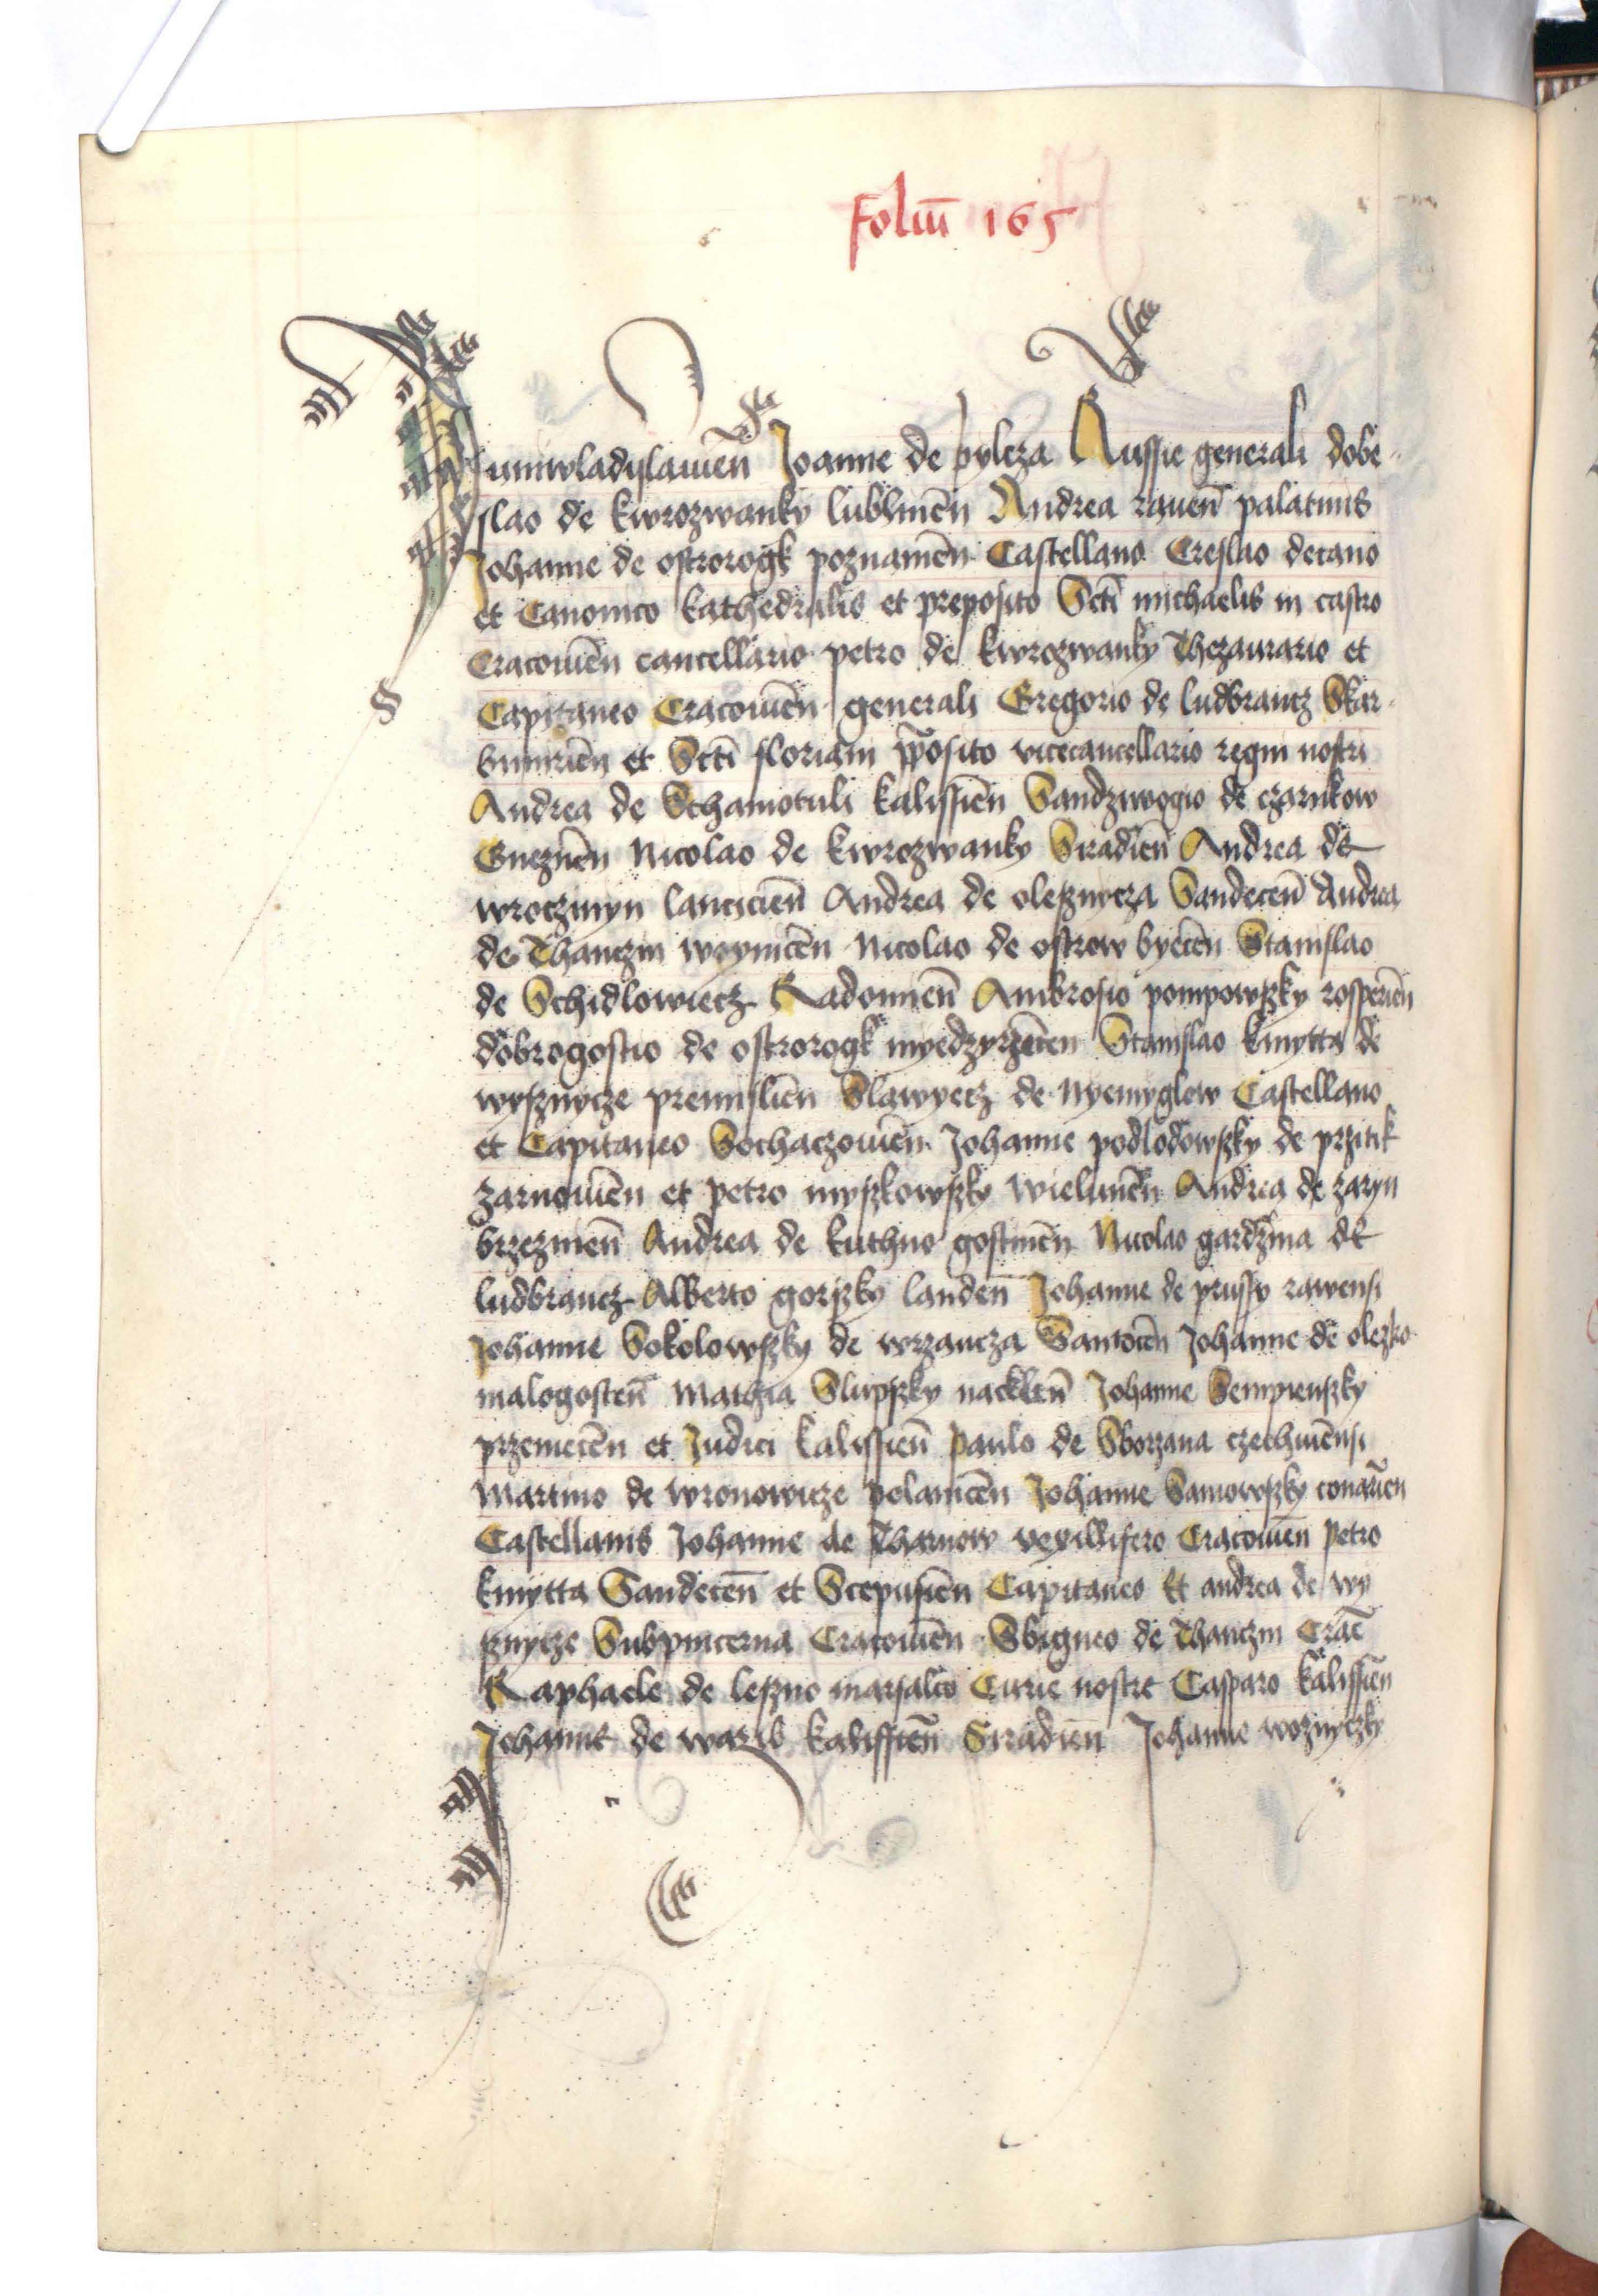 Foliū 165
Juniwladislauien̄ Joanne de pylcza Russie generali dobe-
slao de kwrozwanky lublinen̄ Andrea rauen̄ palatinis
Johanne de ostrorogk poznanien̄ Castellano Creslao decano
et Canonico kathedralis et preposito Sctī michaelis in castro
Cracouien̄ cancellario petro de kwrozwanky Thezaurario et
Capitaneo Cracouien̄ generali Gregorio de ludbrantz Skar-
bimirien̄ et Sctī floriani p̄posito vicecancellario regni nostri
Andrea de Schamotuli kalissien̄ Sandziwogio de czarnkow
Gneznen̄ Nicolao de kwrozwanky Siradien̄ Andrea de
wroczmyn lancicien̄ Andrea de olesznycza Sandecen̄ Andrea
de Thanczin woynicen̄ Nicolao de ostrow byecen̄ Stanislao
de Schidlowiecz Radomien̄ Ambrosio pompowszky rosperien̄
dobrogostio de ostrorogk myedzyrzecen̄ Stanislao kmytta de
wysznycze premislien̄ Slawyecz de Nyemyglow Castellano
et Capitaneo Sochaczouien̄ Johanne podlodowszky de przitik
zarnowien̄ et petro myszkowszky wielunien̄ Andrea de zaryn
brzezinen̄ Andrea de kuthno gostinen̄ Nicolao gardzina de
ludbrancz Alberto gorszky landen̄ Johanne de prussy rawensi
Johanne Sokolowszky de wrzancza Santocen̄ Johanne de olezko
malogosten̄ Mathia Slupszky nacklen̄ Johanne Sempienszky
przemecen̄ et Judici kalissien̄ paulo de Sborzana czechouiēnsi
Martino de wronowicze polanicen̄ Johanne Samowszky conarien̄
Castellanis Johanne de Tharnow vexillifero Cracouien̄ petro
kmytta Sandecen̄ et Scepusien̄ Capitaneo Et andrea de wy
sznycze Subpincerna Cracouien̄ Sbigneo de Thanczin Crac̄
Raphaele de leszno marsalco Curie nostre Casparo kalissien̄
Johanne de warib kalissien̄ Siradien̄ Johanne woznyczky